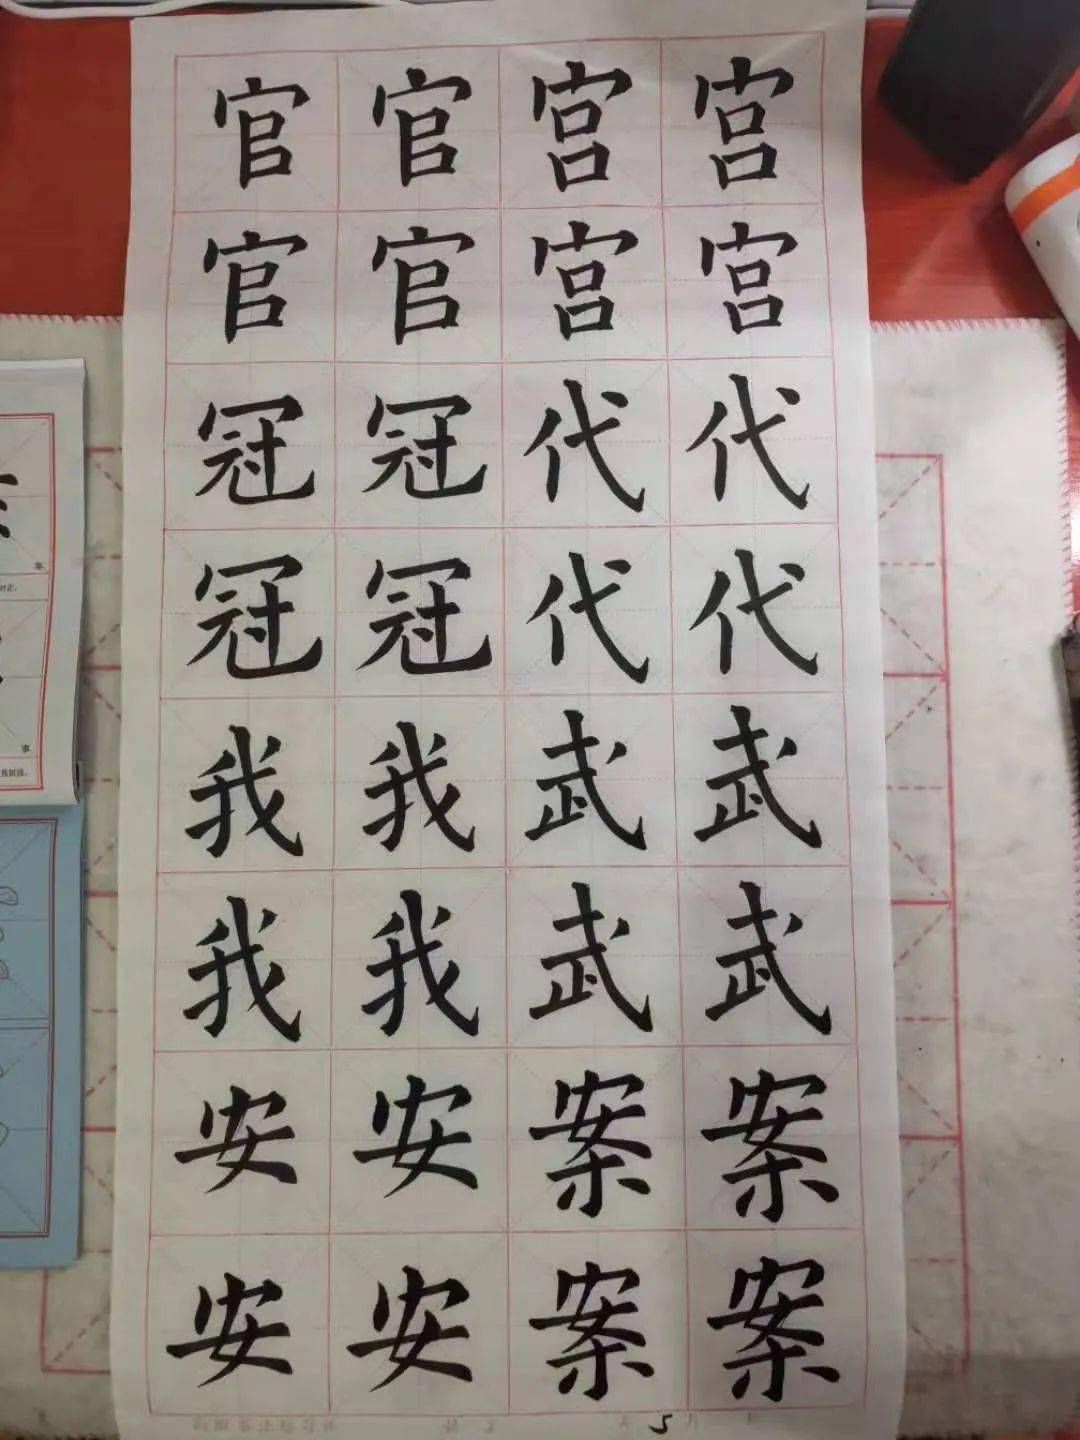 官官宫宫
官官宫宫
冠冠代代
冠冠代代
我我武武
我我武武
安安案案
安安案案
月